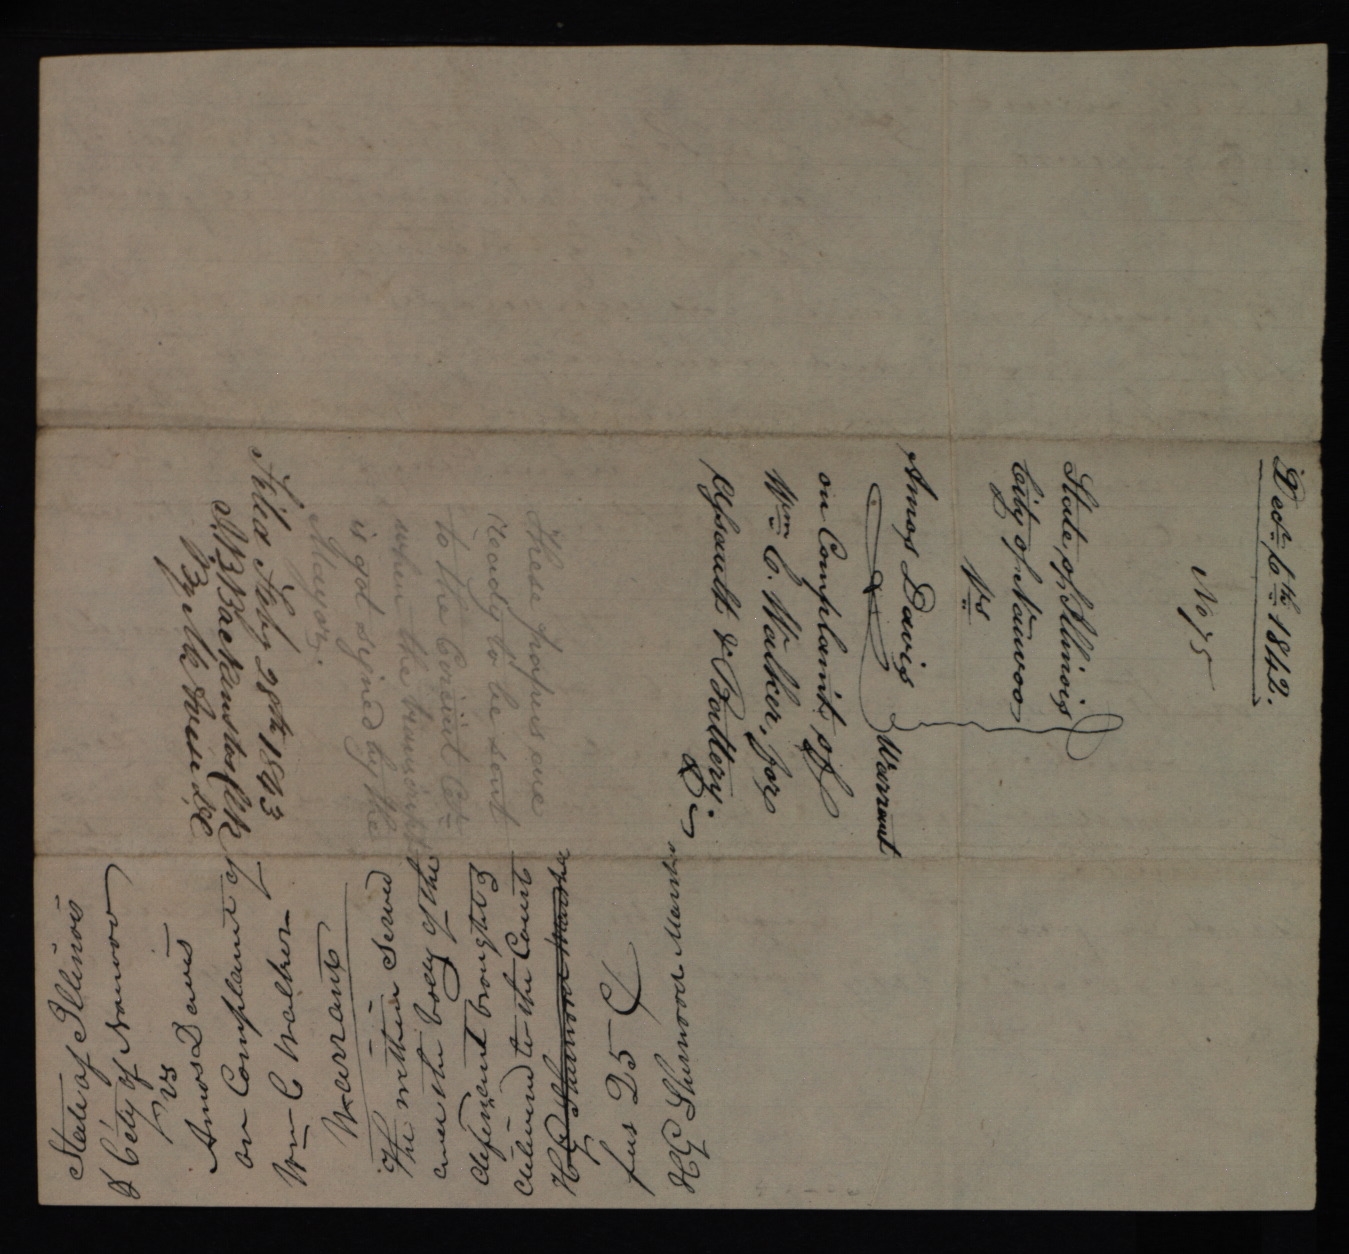 Decr. 6th 1842.
No 75
State of Illinois
City of Nauvoo
vs
Amos Davis
Warrant
on Complaint of
Wm C. Walker, for
Assault & Battery.
These papers are
ready to be sent
to the Circuit Co
when the transcript
is got signed by the
Mayor.
Filed Feby 28th 1843
J B Backenstos Clk
State of Illinois
& City of Nauvoo
vs
Amos Davis
on Complaint of
Wm C Walker
Warrant
The within served
and the body of the
defendant brought &
delivered to the Court
H G Sherwood Marshal
fees 25 c
H G Sherwood Marshal